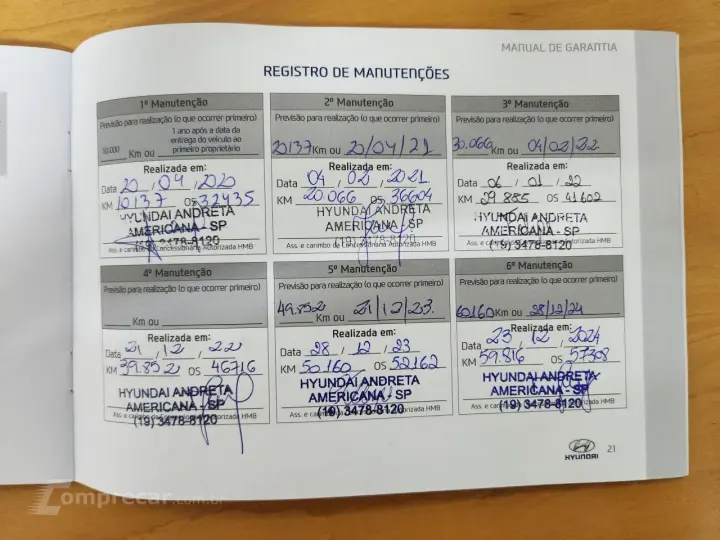 MANUAL DE GARANTIA
REGISTRO DE MANUTENÇÕES
1ª Manutenção
Previsão para realização (o que ocorrer primeiro)
10.000 Km ou 1 ano após a data da entrega do veículo ao primeiro proprietário
Realizada em:
Data 20 / 04 / 2020
KM 10137 OS 32435
HYUNDAI ANDRETA
AMERICANA - SP
(19) 3478-8120
Ass. e carimbo da Concessionária Autorizada HMB
2ª Manutenção
Previsão para realização (o que ocorrer primeiro)
20137 Km ou 20/04/21
Realizada em:
Data 04 / 02 / 2021
KM 20.066 OS 36604
HYUNDAI ANDRETA
AMERICANA - SP
(19) 3478-8120
Ass. e carimbo da Concessionária Autorizada HMB
3ª Manutenção
Previsão para realização (o que ocorrer primeiro)
30.066 Km ou 04/02/22
Realizada em:
Data 06 / 01 / 22
KM 29.885 OS 41602
HYUNDAI ANDRETA
AMERICANA - SP
(19) 3478-8120
Ass. e carimbo da Concessionária Autorizada HMB
4ª Manutenção
Previsão para realização (o que ocorrer primeiro)
Km ou
Realizada em:
Data 21 / 12 / 22
KM 39.852 OS 46716
HYUNDAI ANDRETA
AMERICANA - SP
(19) 3478-8120
Ass. e carimbo da Concessionária Autorizada HMB
5ª Manutenção
Previsão para realização (o que ocorrer primeiro)
49.852 Km ou 21/12/23
Realizada em:
Data 28 / 12 / 23
KM 50.160 OS 52162
HYUNDAI ANDRETA
AMERICANA - SP
(19) 3478-8120
Ass. e carimbo da Concessionária Autorizada HMB
6ª Manutenção
Previsão para realização (o que ocorrer primeiro)
60160 Km ou 28/12/24
Realizada em:
Data 23 / 12 / 2024
KM 59.816 OS 57308
HYUNDAI ANDRETA
AMERICANA - SP
(19) 3478-8120
Ass. e carimbo da Concessionária Autorizada HMB
HYUNDAI
21
Comprecar.com.br